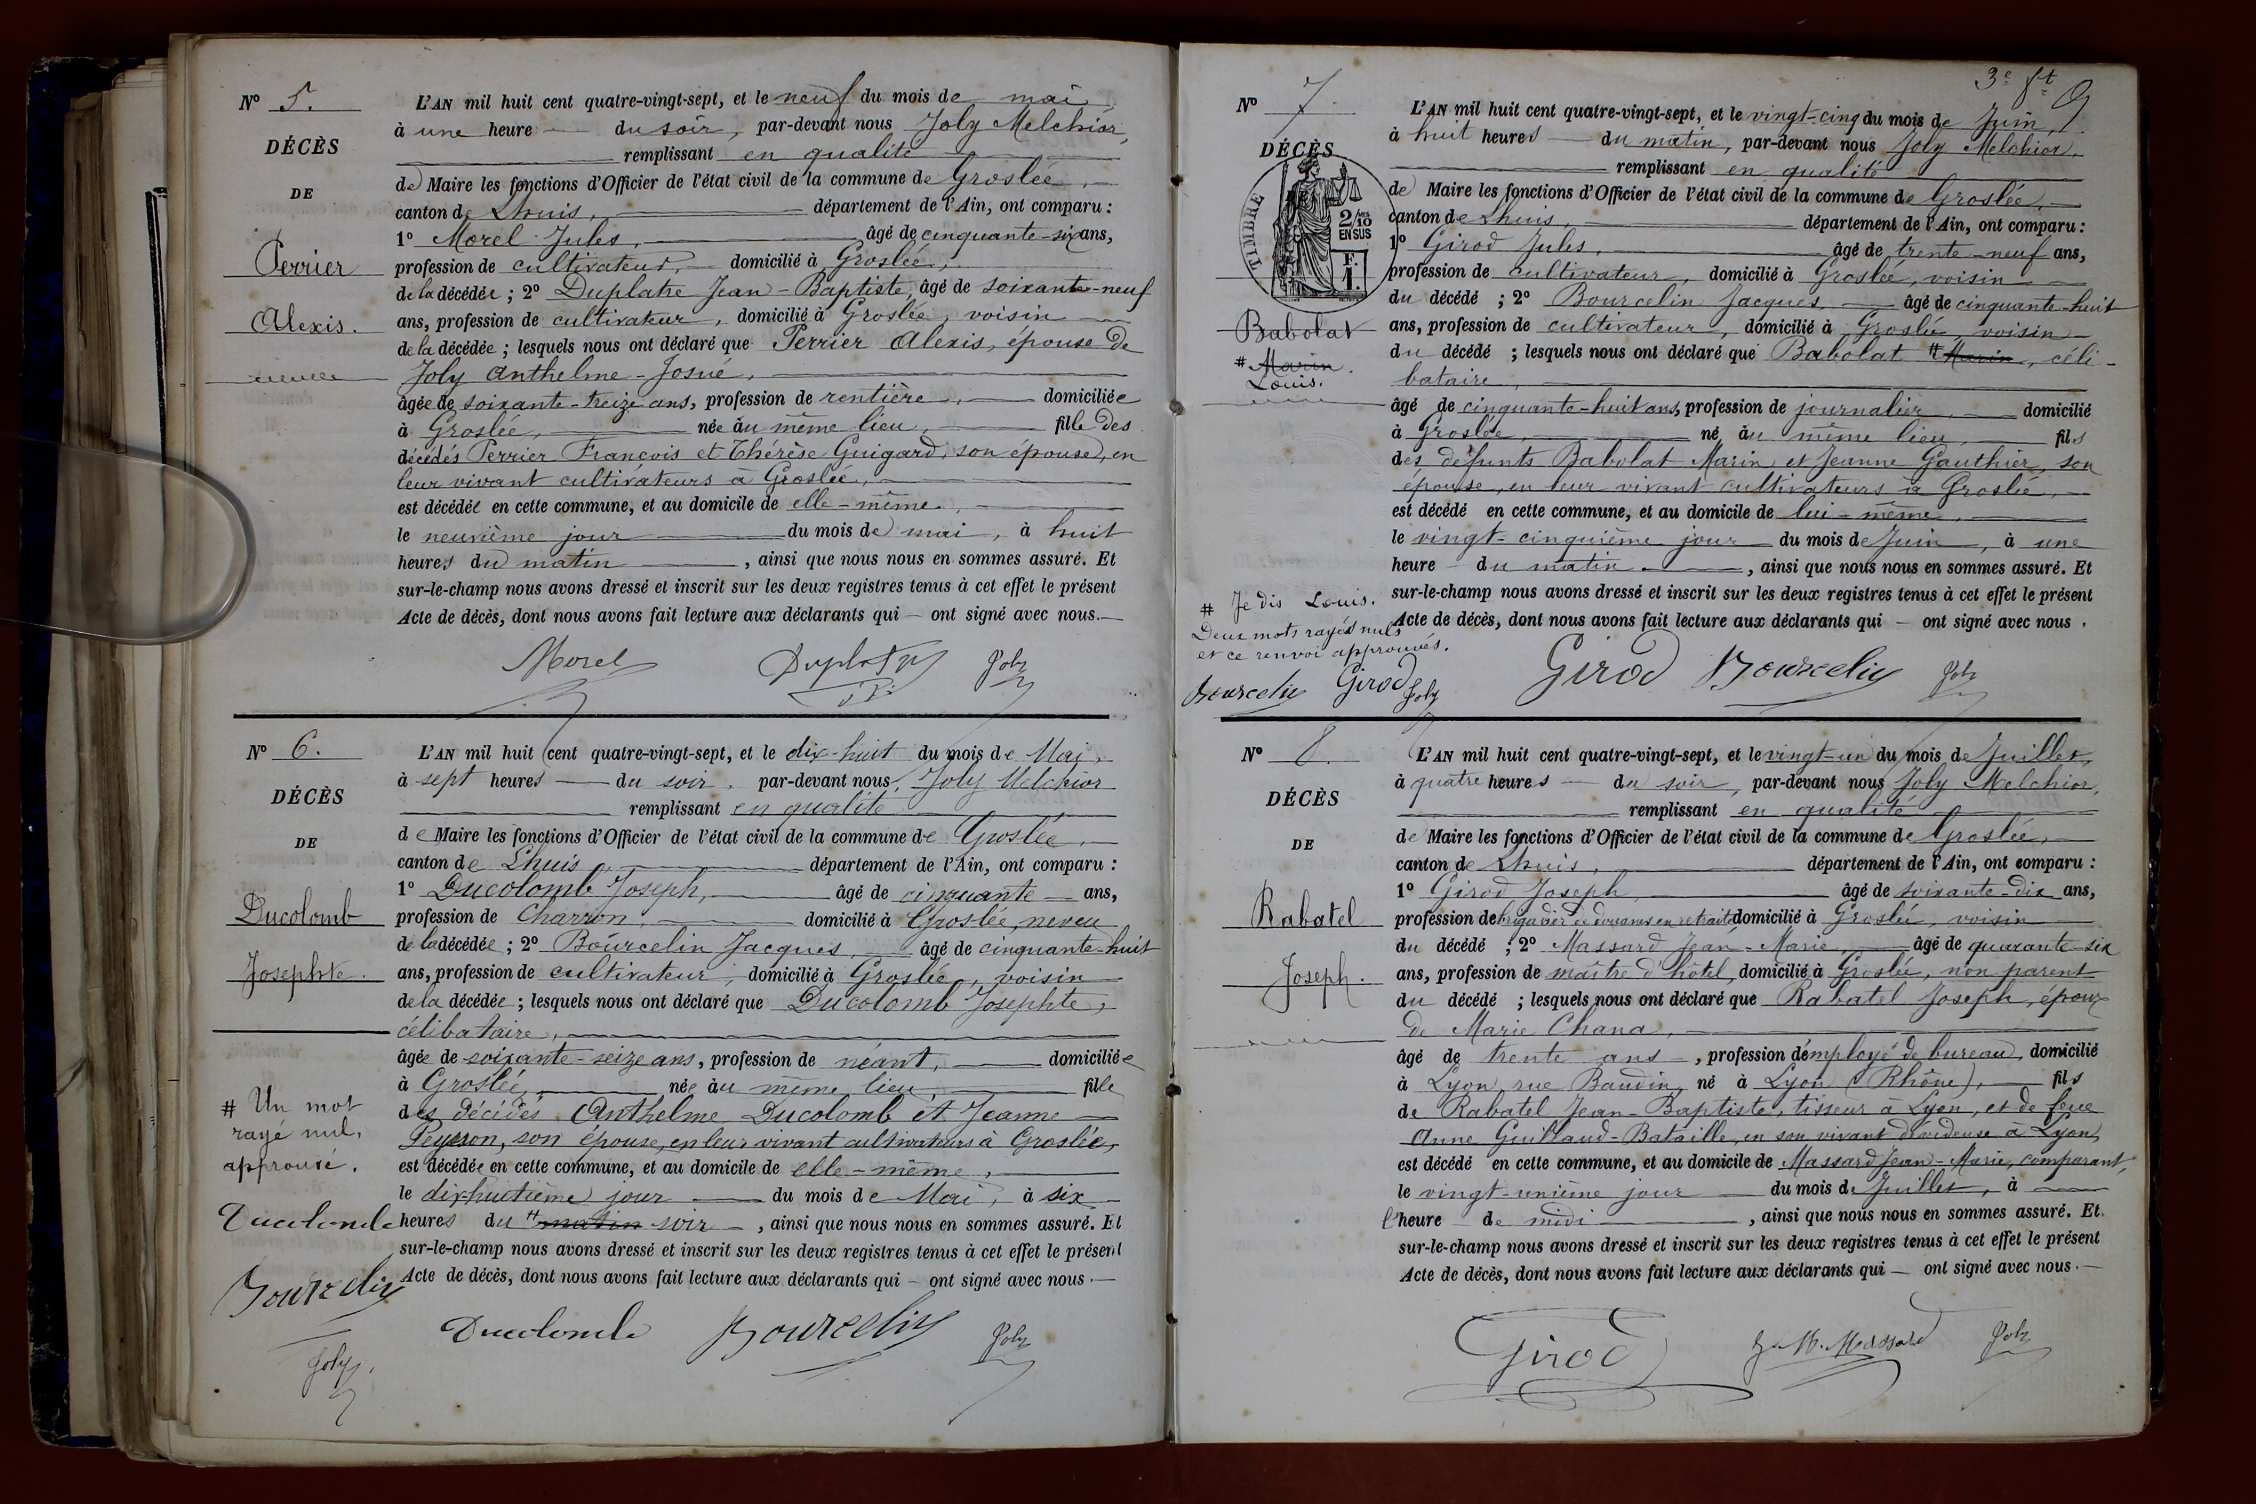 N° 5.
DÉCÈS
DE
Perrier
Alexis.
L'AN mil huit cent quatre-vingt-sept, et le neuf du mois de mai
à une heure du soir, par-devant nous Joly Melchior,
remplissant en qualité
de Maire les fonctions d'Officier de l'état civil de la commune de Groslée,
canton de Lhuis, département de l'Ain, ont comparu :
1° Morel Jules, âgé de cinquante-six ans,
profession de cultivateur, domicilié à Groslée,
de la décédée ; 2° Duplatre Jean-Baptiste, âgé de soixante-neuf
ans, profession de cultivateur, domicilié à Groslée, voisin
de la décédée ; lesquels nous ont déclaré que Perrier Alexis, épouse de
Joly Anthelme-Josué,
âgée de soixante-treize ans, profession de rentière, domiciliée
à Groslée, née au même lieu, fille des
décédés Perrier François et Thérèse Guigard, son épouse, en
leur vivant cultivateurs à Groslée,
est décédée en cette commune, et au domicile de elle-même,
le neuvième jour du mois de mai, à huit
heures du matin, ainsi que nous nous en sommes assuré. Et
sur-le-champ nous avons dressé et inscrit sur les deux registres tenus à cet effet le présent
Acte de décès, dont nous avons fait lecture aux déclarants qui — ont signé avec nous.—
Morel Duplatre Joly
N° 6.
DÉCÈS
DE
Ducolomb
Josephte.
# Un mot
rayé nul,
approuvé.
Ducolomb
Bourcelin
Joly
L'AN mil huit cent quatre-vingt-sept, et le dix-huit du mois de Mai,
à sept heures du soir, par-devant nous, Joly Melchior
remplissant en qualité
de Maire les fonctions d'Officier de l'état civil de la commune de Groslée,
canton de Lhuis, département de l'Ain, ont comparu :
1° Ducolomb Joseph, âgé de cinquante ans,
profession de Charron, domicilié à Groslée, neveu
de la décédée ; 2° Bourcelin Jacques, âgé de cinquante-huit
ans, profession de cultivateur, domicilié à Groslée, voisin
de la décédée ; lesquels nous ont déclaré que Ducolomb Josephte,
célibataire,
âgée de soixante-seize ans, profession de néant, domiciliée
à Groslée, née au même lieu fille
des décédés Anthelme Ducolomb et Jeanne
Peysson, son épouse, en leur vivant cultivateurs à Groslée,
est décédée en cette commune, et au domicile de elle-même,
le dix-huitième jour du mois de Mai, à six
heures du # matin soir, ainsi que nous nous en sommes assuré. Et
sur-le-champ nous avons dressé et inscrit sur les deux registres tenus à cet effet le présent
Acte de décès, dont nous avons fait lecture aux déclarants qui — ont signé avec nous.—
Ducolomb Bourcelin Joly
3e ft 9
N° 7.
DÉCÈS
TIMBRE
2/10
EN SUS
F.
1.
Babolat
# Marin.
Louis.
L'AN mil huit cent quatre-vingt-sept, et le vingt-cinq du mois de Juin,
à huit heures du matin, par-devant nous Joly Melchior,
remplissant en qualité
de Maire les fonctions d'Officier de l'état civil de la commune de Groslée,
canton de Lhuis, département de l'Ain, ont comparu :
1° Girod Jules, âgé de trente-neuf ans,
profession de cultivateur, domicilié à Groslée, voisin
du décédé ; 2° Bourcelin Jacques, âgé de cinquante-huit
ans, profession de cultivateur, domicilié à Groslée, voisin
du décédé ; lesquels nous ont déclaré que Babolat # Marin, céli-
bataire,
âgé de cinquante-huit ans, profession de journalier, domicilié
à Groslée, né au même lieu, fils
des défunts Babolat Marin et Jeanne Gauthier, son
épouse, en leur vivant cultivateurs à Groslée,
est décédé en cette commune, et au domicile de lui-même,
le vingt-cinquième jour du mois de Juin, à une
heure du matin, ainsi que nous nous en sommes assuré. Et
sur-le-champ nous avons dressé et inscrit sur les deux registres tenus à cet effet le présent
Acte de décès, dont nous avons fait lecture aux déclarants qui — ont signé avec nous.
# Je dis Louis.
Deux mots rayés nuls
et ce renvoi approuvés.
Bourcelin Girod Joly
Girod Bourcelin Joly
N° 8.
DÉCÈS
DE
Rabatel
Joseph.
L'AN mil huit cent quatre-vingt-sept, et le vingt-un du mois de Juillet,
à quatre heures du soir, par-devant nous Joly Melchior,
remplissant en qualité
de Maire les fonctions d'Officier de l'état civil de la commune de Groslée,
canton de Lhuis, département de l'Ain, ont comparu :
1° Girod Joseph âgé de soixante-dix ans,
profession de brigadier de douanes en retraite domicilié à Groslée, voisin
du décédé ; 2° Massard Jean-Marie, âgé de quarante-six
ans, profession de maître d'hôtel, domicilié à Groslée, non parent
du décédé ; lesquels nous ont déclaré que Rabatel Joseph, époux
de Marie Chana,
âgé de trente ans, profession d'employé de bureau, domicilié
à Lyon, rue Baudin, né à Lyon (Rhône), fils
de Rabatel Jean-Baptiste, tisseur à Lyon, et de feue
Anne Guillaud-Bataille, en son vivant dévideuse à Lyon,
est décédé en cette commune, et au domicile de Massard Jean-Marie, comparant,
le vingt-unième jour du mois de Juillet, à
l'heure de midi, ainsi que nous nous en sommes assuré. Et
sur-le-champ nous avons dressé et inscrit sur les deux registres tenus à cet effet le présent
Acte de décès, dont nous avons fait lecture aux déclarants qui — ont signé avec nous.—
Girod J. M. Massard Joly